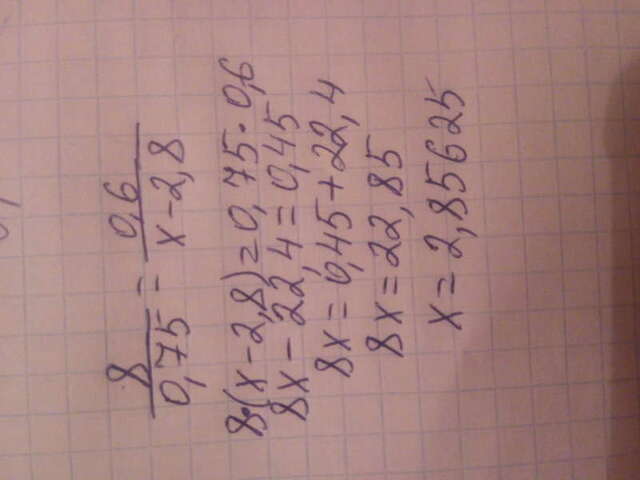 8/0,75 = 0,6/x-2,8
8·(x-2,8)=0,75·0,6
8x-22,4=0,45
8x=0,45+22,4
8x=22,85
x=2,85625